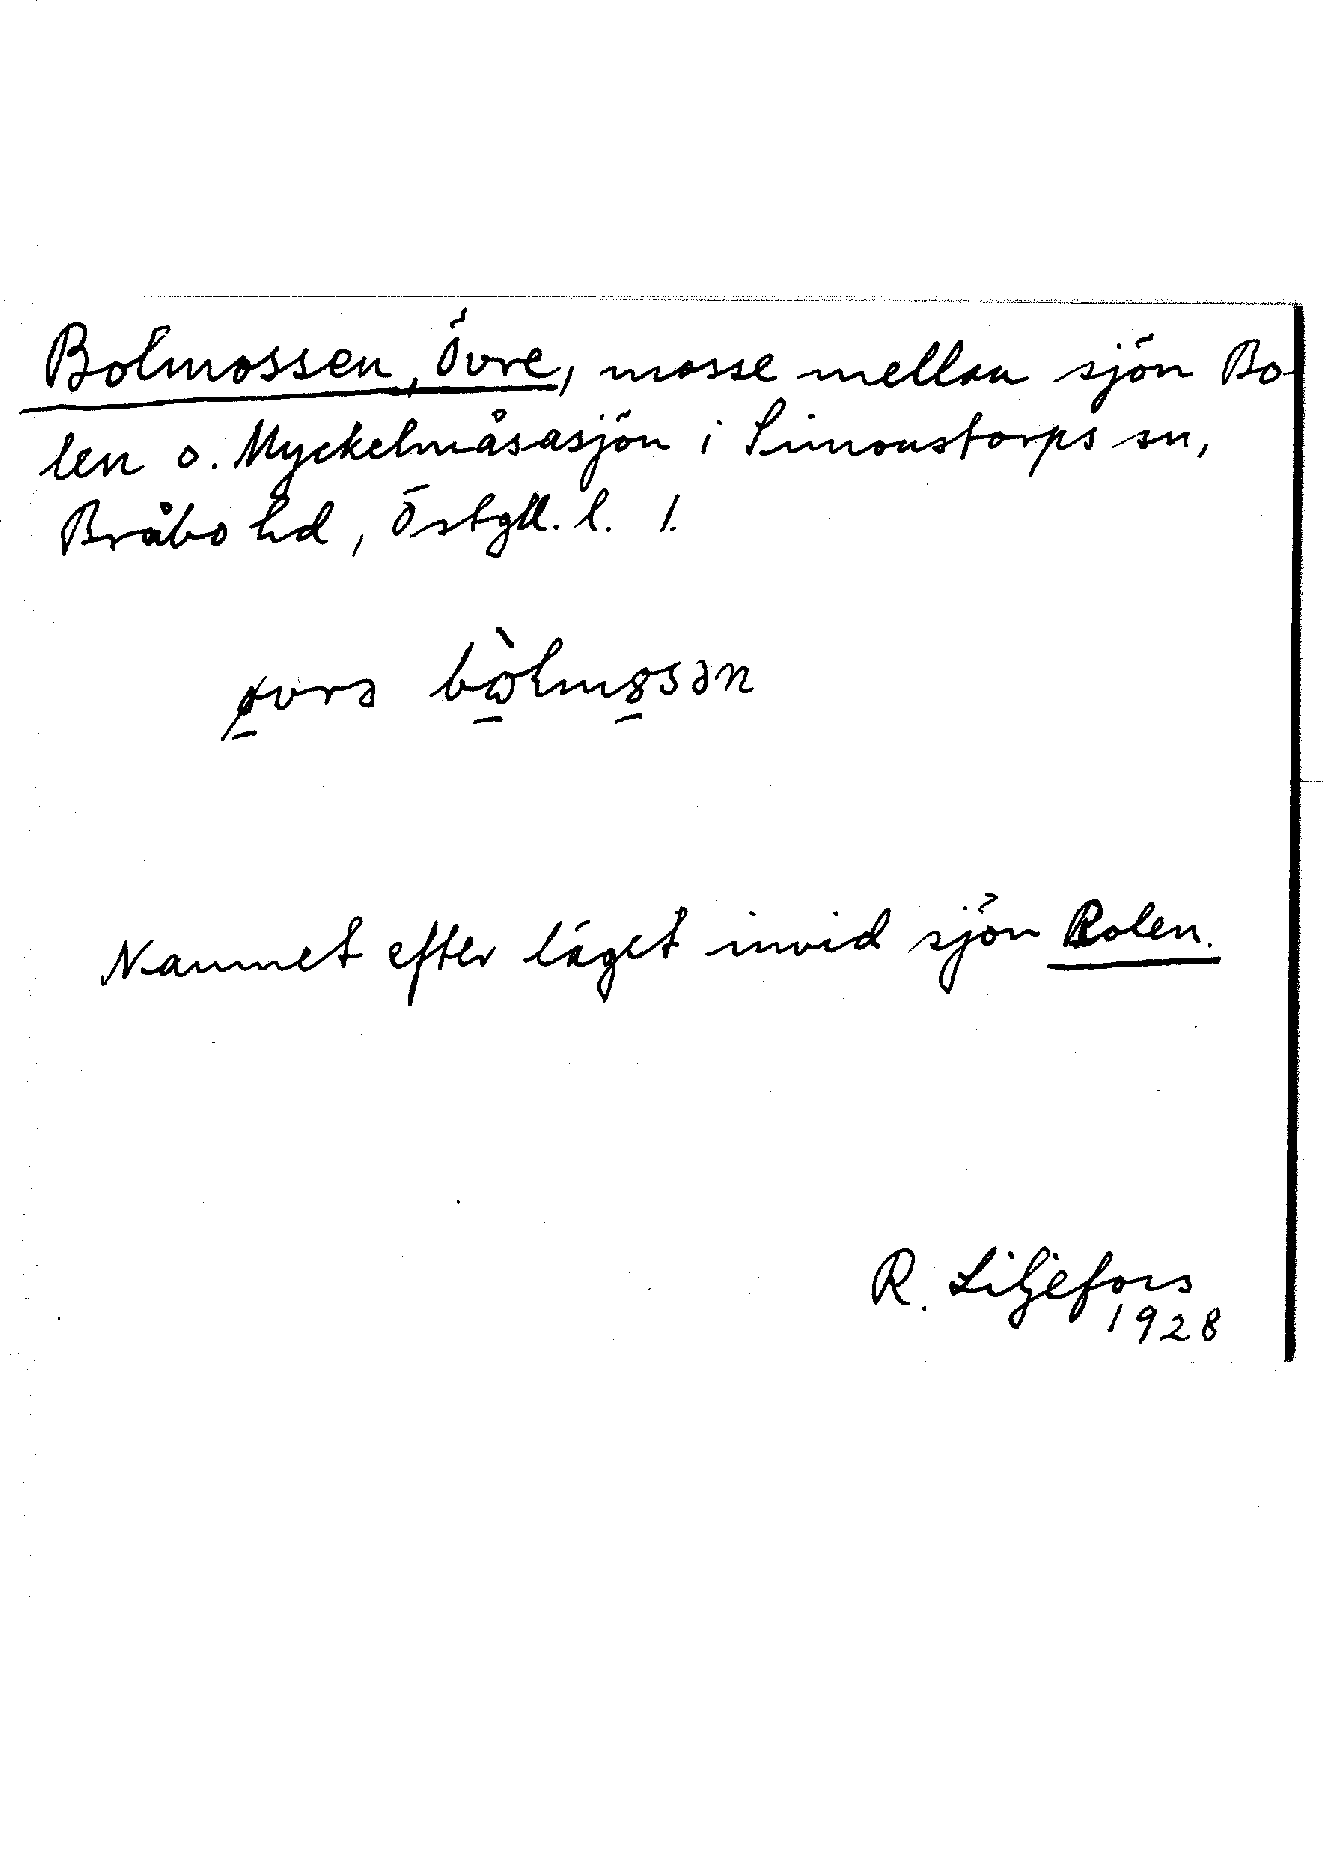 Bolmossen, Övre, mosse mellan sjön Bo-
len o. Myckelmåsasjön i Simonstorps sn,
Bråbo hd, Östgll. l. 1.
øvrə bὼlmȣsən
Namnet efter läget invid sjön Bolen.
R. Liljefors
1928